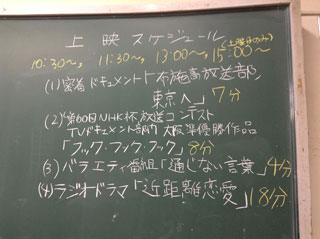 上映スケジュール
(土曜日のみ)
10:30〜, 11:30〜, 13:00〜, 15:00〜
(1)密着ドキュメント「布施高放送部、
東京へ」7分
(2)「第60回NHK杯放送コンテスト
TVドキュメント部門 大阪準優勝作品
「フック・フック・フック」8分
(3)バラエティ番組「通じない言葉」4分
(4)ラジオドラマ「近距離恋愛」8分